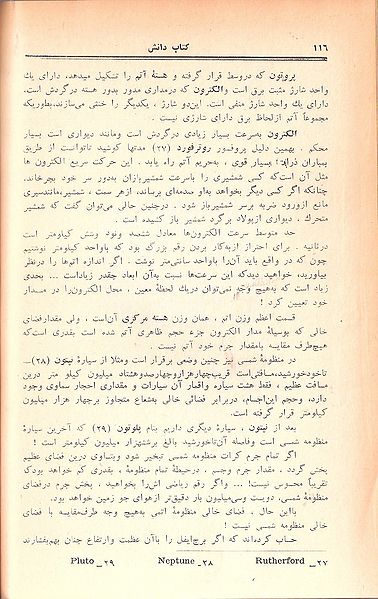 ۱۱۶ کتاب دانش
پروتون که دروسط قرار گرفته و هستهٔ آتم را تشکیل میدهد، دارای یك
واحد شارژ مثبت برق است والکترون که درمداری مدور بدور هسته درگردش است.
دارای یك واحد شارژ منفی است. این‌دو شارژ، یکدیگر را خنثی می‌سازند، بطوریکه
مجموعاً آتم ازلحاظ برق دارای شارژی نیست.
الکترون به‌سرعت بسیار زیادی درگردش است ومانند دیواری است بسیار
محکم. بهمین دلیل پروفسور روترفورد (۲۷) مدتها کوشید تاتوانست از طریق
بمباران ذرات بسیار قوی، به‌حریم آتم راه یابد. این حرکت سریع الکترون ها
مثل آن‌است‌که کسی شمشیری را باسرعت شمشیربازان به‌دور سر خود بچرخاند.
چنانکه اگر کسی دیگر بخواهد به‌او صدمه‌ای برساند، ازهر سمت، شمشیر، مانندسپری
مانع ازورود ضربه برسر شمشیرباز شود. درچنین حالی می‌توان گفت که شمشیر
متحرك، دیواری ازپولاد برگرد شمشیر باز کشیده است.
حد متوسط سرعت الکترون‌ها معادل شصد ونود وشش کیلومتر است
درثانیه. برای احتراز ازبه‌کار بردن رقم بزرگ بود که باواحد کیلومتر نوشتیم
چون که در واقع باید آن‌را باواحد سانتی‌متر نوشت. اگر اندازه آتم‌ها را درنظر
بیاورید، خواهید دیدکه این سرعت‌ها نسبت به‌آن ابعاد چقدر زیاداست ... بحدی
زیاد است که به‌هیچ وجه نمی‌توان دریك لحظهٔ معین، محل الکترون‌را در مدار
خود تعیین کرد!
قسمت اعظم وزن آتم، همان وزن هسته مرکزی آن‌است، ولی مقدارفضای
خالی که بوسیلهٔ مدار الکترون جزء حجم ظاهری آتم شده است بقدری است‌که
هیچ‌طرف مقایسه بامقدار جرم خود آتم نیست.
در منظومهٔ شمسی نیز چنین وضعی برقرار است ومثلا از سیارهٔ نپتون (۲۸) ـ
تاخودخورشید، مسافتی‌است قریب‌چهارهزاروچهارصدوهشتاد میلیون کیلو متر دراین
مسافت عظیم، فقط هشت سیاره واقمار آن سیارات و مقداری احجار سماوی وجود
دارد، وحجم این‌اجسام، دربرابر فضائی خالی به‌شعاع متجاوز برچهار هزار میلیون
کیلومتر قرار گرفته است.
بعد از نپتون، سیارهٔ دیگری داریم بنام پلوتون (۲۹) که آخرین سیارهٔ
منظومه شمسی است وفاصله آن‌تاخورشید بالغ برشش‌هزار میلیون کیلومتر است!
اگر تمام جرم کرات منظومه شمسی تبخیر شود وبتساوی دراین فضای عظیم
پخش گردد، مقدار جرم وجسم، درحیطهٔ تمام منظومهٔ، بقدری کم خواهد بودکه
تقریباً محسوس نیست! ... واگر رقم ریاضی اش‌را بخواهید، پخش جرم درفضای
منظومهٔ شمسی، دویست وسی‌میلیون بار دقیق‌تر ازهوای جو زمین خواهد بود.
بااین حال، فضای خالی منظومهٔ اتمی به‌هیچ وجه طرف‌مقایسه با فضای
خالی منظومه شمسی نیست!
حساب کرده‌اند که اگر برج‌ایفل را باآن عظمت وارتفاع چنان بهم‌بفشارند
۲۷ـ Rutherford ۲۸ـ Neptune ۲۹ـ Pluto